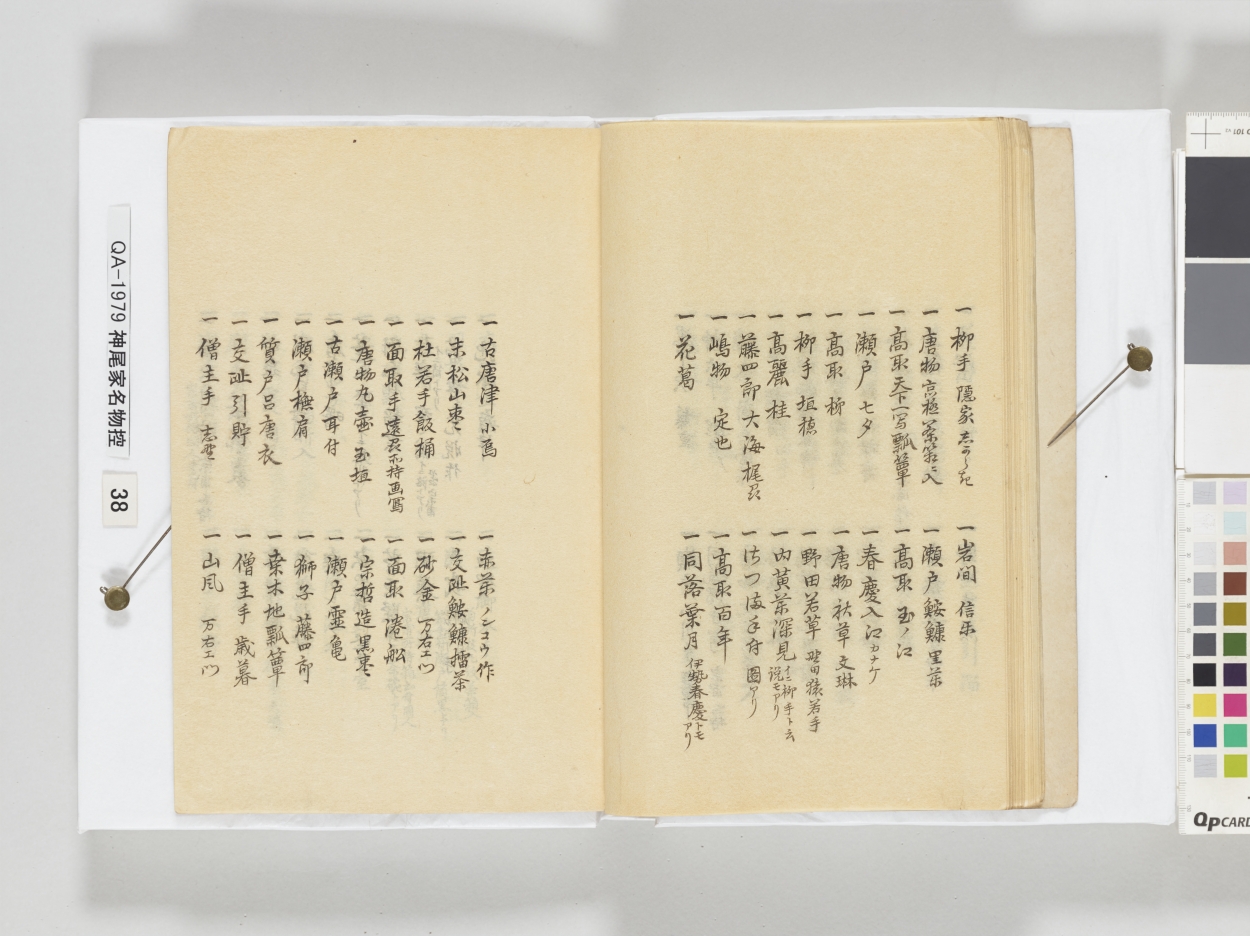 一 柳手 隠家
一 唐物
一 高取 天下一写瓢箪
一 瀬戸 七夕
一 高取 柳
一 柳手 垣穂
一 高麗 桂
一 藤四郎 大海
一 嶋物 定也
一 花葛
一 岩間 信楽
一 瀬戸鮟鱇
一 高取 玉ノ江
一 春慶入江カナケ
一 唐物 秋草 文琳
一 野田若草
一 内黄茶深見 柳手ト云説モアリ
一 アリ
一 高取百年
一 同 落葉月 伊勢春慶トモアリ
一 古唐津 小鳥
一 末松山棗
一 杜若手飯桶
一 面取手 画写
一 唐物丸壷 玉垣
一 古瀬戸耳付
一 瀬戸撫肩
一 質戸呂唐衣
一 交趾引貯
一 僧主手
一 赤茶ノンコウ作
一 交趾鮟鱇擂茶
一 砂金 万右エ門
一 面取
一 宗哲造黒棗
一 瀬戸霊亀
一 獅子 藤四郎
一 桑木地瓢箪
一 僧主手 歳暮
一 山風 万右エ門
QA-1979 神尾家名物控
38
QPCARD